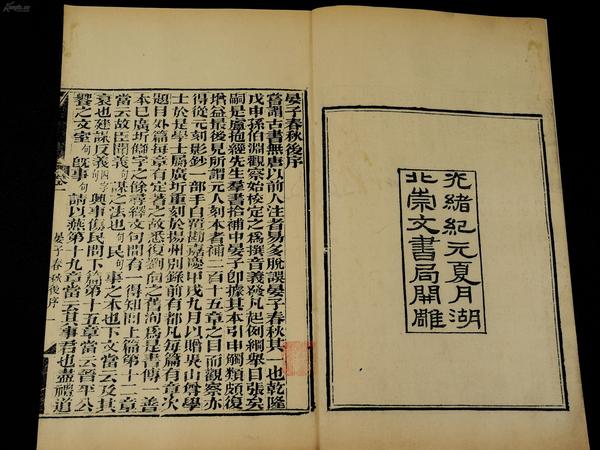 光緒紀元夏月湖
北崇文書局開雕
晏子春秋後序
嘗謂古書無唐以前人注者易多脫誤晏子春秋其一也乾隆
戊申孫伯淵觀察始校定之爲撰音義發凡起例綱舉目張矣
嗣是盧抱經先生羣書拾補中晏子卽據其本引申觸類頗復
增益最後見所謂元人刻本者補二百十五章之目而觀察亦
得從元刻影鈔一部手自覆勘嘉慶甲戌九月以贈吳山尊學
士於是學士屬廣圻重刻於揚州別錄前有都凡每篇有章次
題目外篇每章有定著之故悉復劉向之舊洵爲是書傳一善
本已廣圻讎字之餘尋繹文句間有一得如問上篇第十二章
當云故臣聞義句謀之法也句民句事之本也下文當云及其
衰也建謀反義句四字興事傷民問下篇第十五章當云晉平公
饗之文室句旣事句請以燕第十九章當云其事君也盡禮道
晏子春秋後序 一